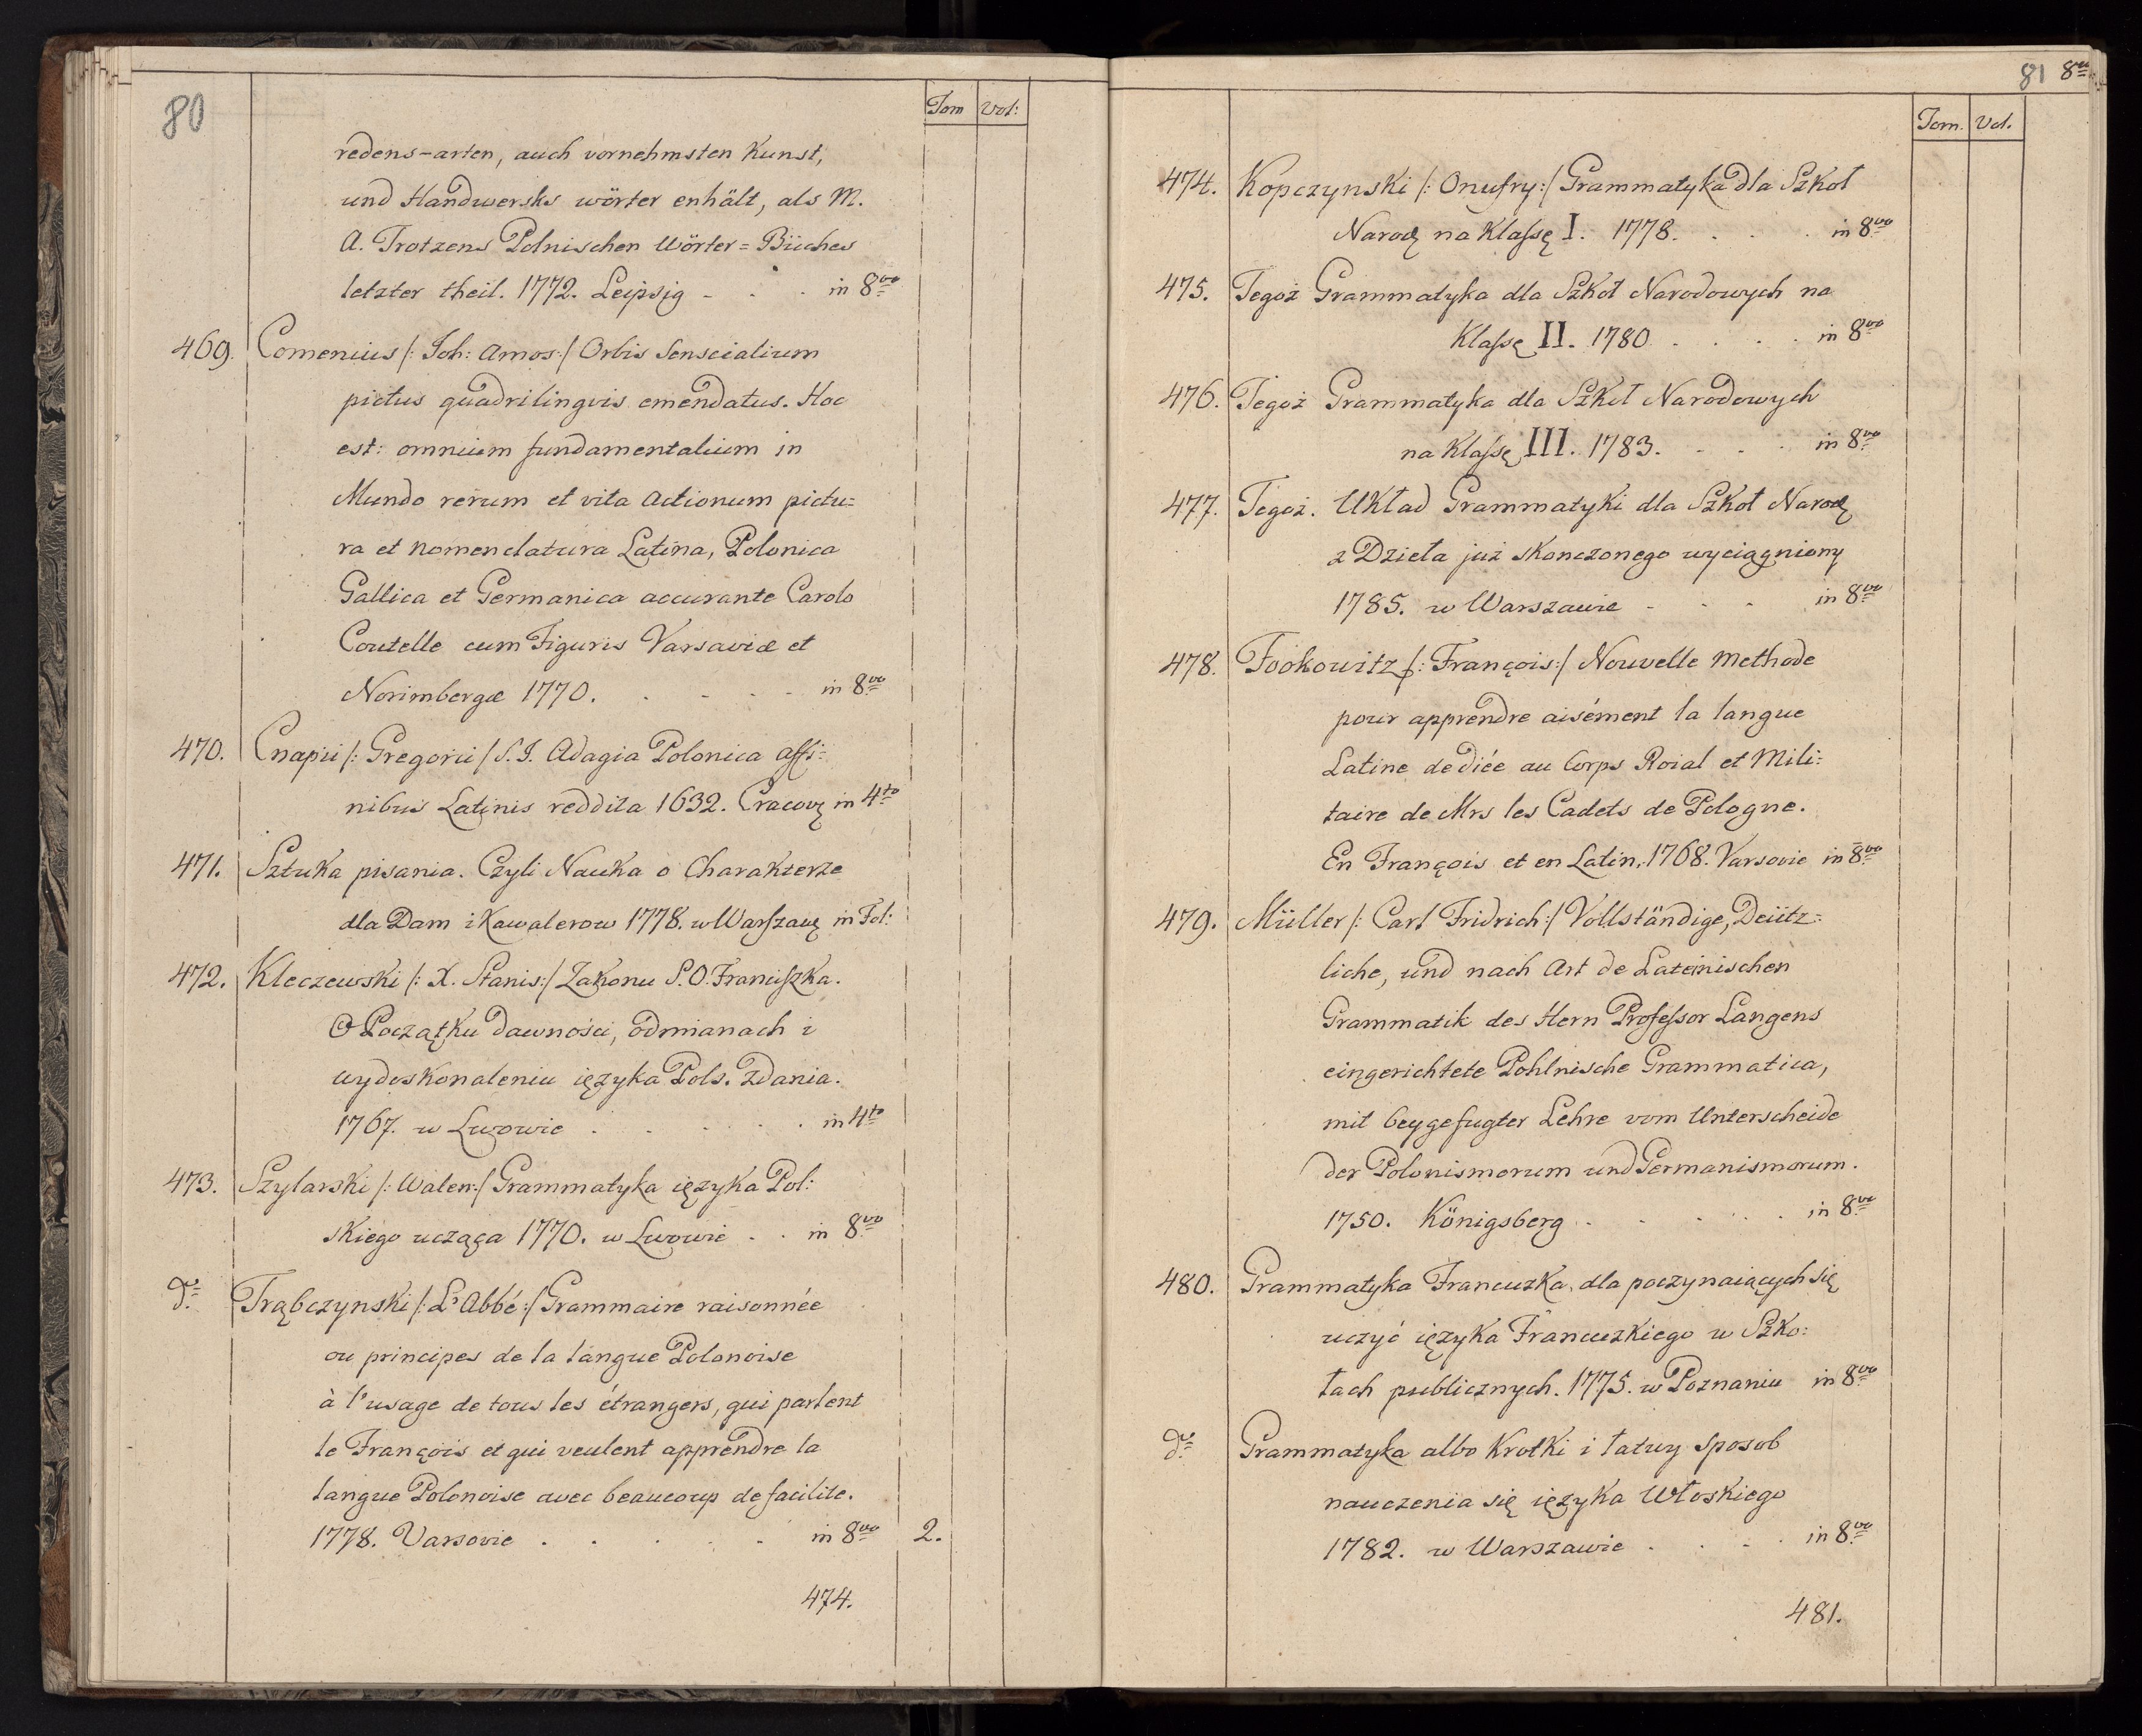 80
Tom Vol:
redens-arten, auch vornehmsten Kunst,
und Handwersks wörter enhält, als M.
A. Trotzens Polnischen Wörter=Bücher
letzter theil. 1772. Leipsig - . . in 8vo
469. Comenius /: Joh: Amos:/ Orbis Senscialium
pictus quadrilingvis emendatus. Hoc
est: omnium fundamentalium in
Mundo rerum et vita Actionum pictu=
ra et Nomenclatura Latina, Polonica
Gallica et Germanica accurante Carolo
Coutelle cum Figuris Varsaviæ et
Norimbergæ 1770. . - - - in 8vo
470. Cnapii /: Gregorii / S. J. Adagia Polonica affi=
nibus Latinis reddita 1632. Cracovę in 4to
471. Sztuka pisania. Czyli Nauka o Charakterze
dla Dam i Kawalerow 1778. w Warszaw. in Fol:
472. Kleczewski /: X. Stanis:/ Zakonu S. O. Franciszka.
O Początku dawności, odmianach i
wydoskonaleniu ięzyka Pols. Zdania.
1767. w Lwowie . . . . . in 4to
473. Szylarski /: Walen:/ Grammatyka ięzyka Pol:
skiego ucząca 1770. w Lwowie . . in 8vo
do Trąbczynski /: L'Abbé:/ Grammaire raisonnée
ou principes de la langue Polonoise
à l'usage de tous les étrangers, qui parlent
le François et qui veulent apprendre la
langue Polonoise avec beaucoup de facilite.
1778. Varsovie . . . . . in 8vo 2.
474.
81 8vo
Tom. Vol.
474. Kopczynski /: Onufry:/ Grammatyka dla Szkoł
Narod. na Klassę I. 1778. . . . in 8vo
475. Tegoż Grammatyka dla Szkoł Narodowych na
Klassę II. 1780 . . . . in 8vo
476. Tegoż Grammatyka dla Szkoł Narodowych
na Klassę III. 1783. - - . in 8vo
477. Tegoż. Układ Grammatyki dla Szkoł Narod.
z Dzieła już skonczonego wyciągniony
1785. w Warszawie - - - in 8vo
478. Foökowitz /: François:/ Nouvelle Methode
pour apprendre aisément la langue
Latine dediée au Corps Roial et Mili=
taire de Mrs les Cadets de Pologne.
En François et en Latin. 1768. Varsovie in 8vo
479. Müller /: Carl Fridrich:/ Vollständige, Deütz=
liche, und nach Art de Lateinischen
Grammatik des Hern Professor Langens
eingerichtete Pohlnische Grammatica,
mit beygefugter Lehre vom Unterscheide
der Polonismorum und Germanismorum.
1750. Königsberg . . . . . in 8vo
480. Grammatyka Francuzka, dla poczynaiących się
uczyć ięzyka Francuzkiego w Szko=
łach publicznych. 1775. w Poznaniu in 8vo
do Grammatyka albo Krotki i łatwy sposob
nauczenia się ięzyka Włoskiego
1782. w Warszawie . . - . in 8vo
481.